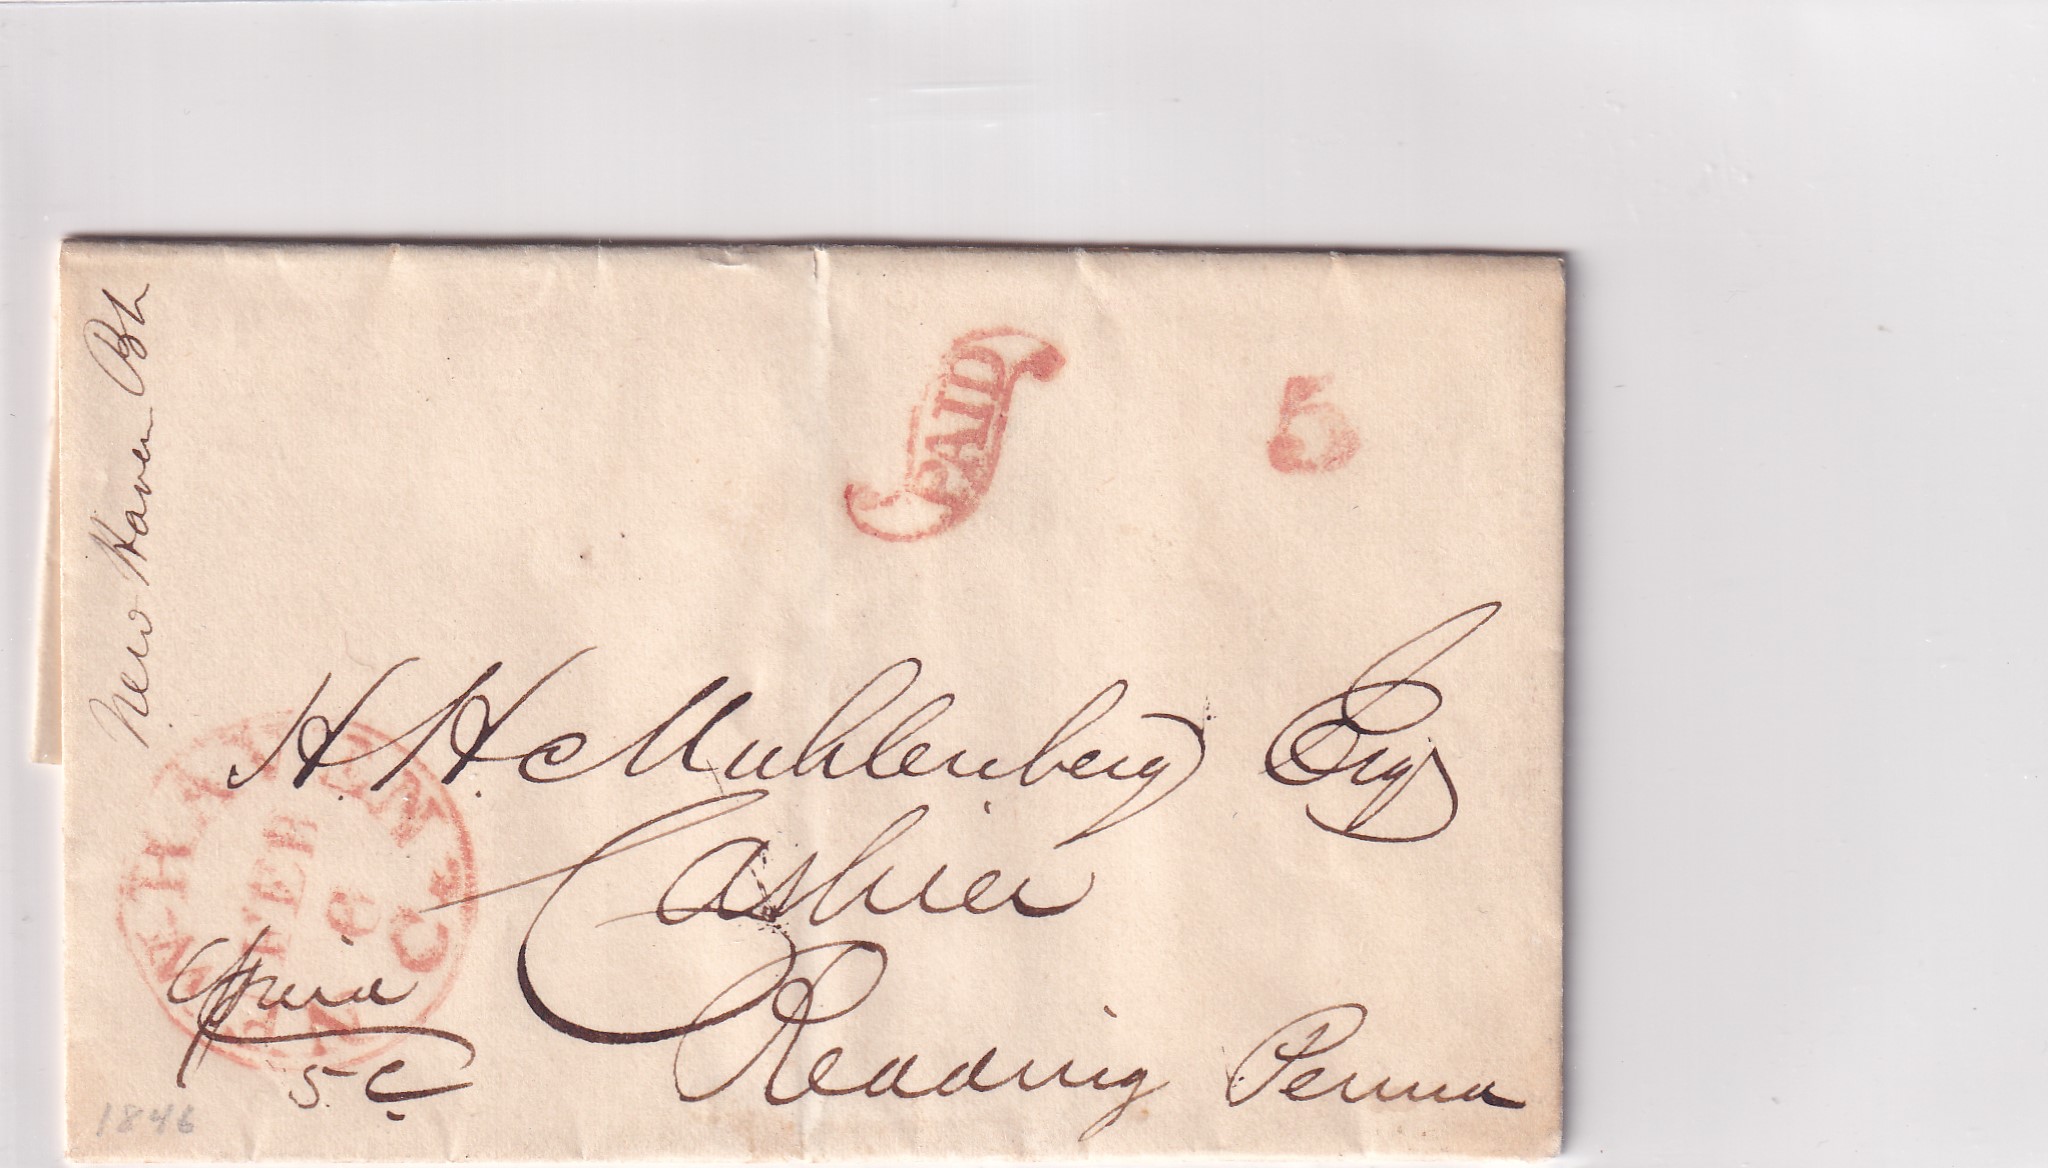 New Haven Bk
PAID
5
H. H. Muhlenberg Esq
Cashier
Reading Penna
Paid
5 C
N-HAVEN Ct.
FEB
6
1846